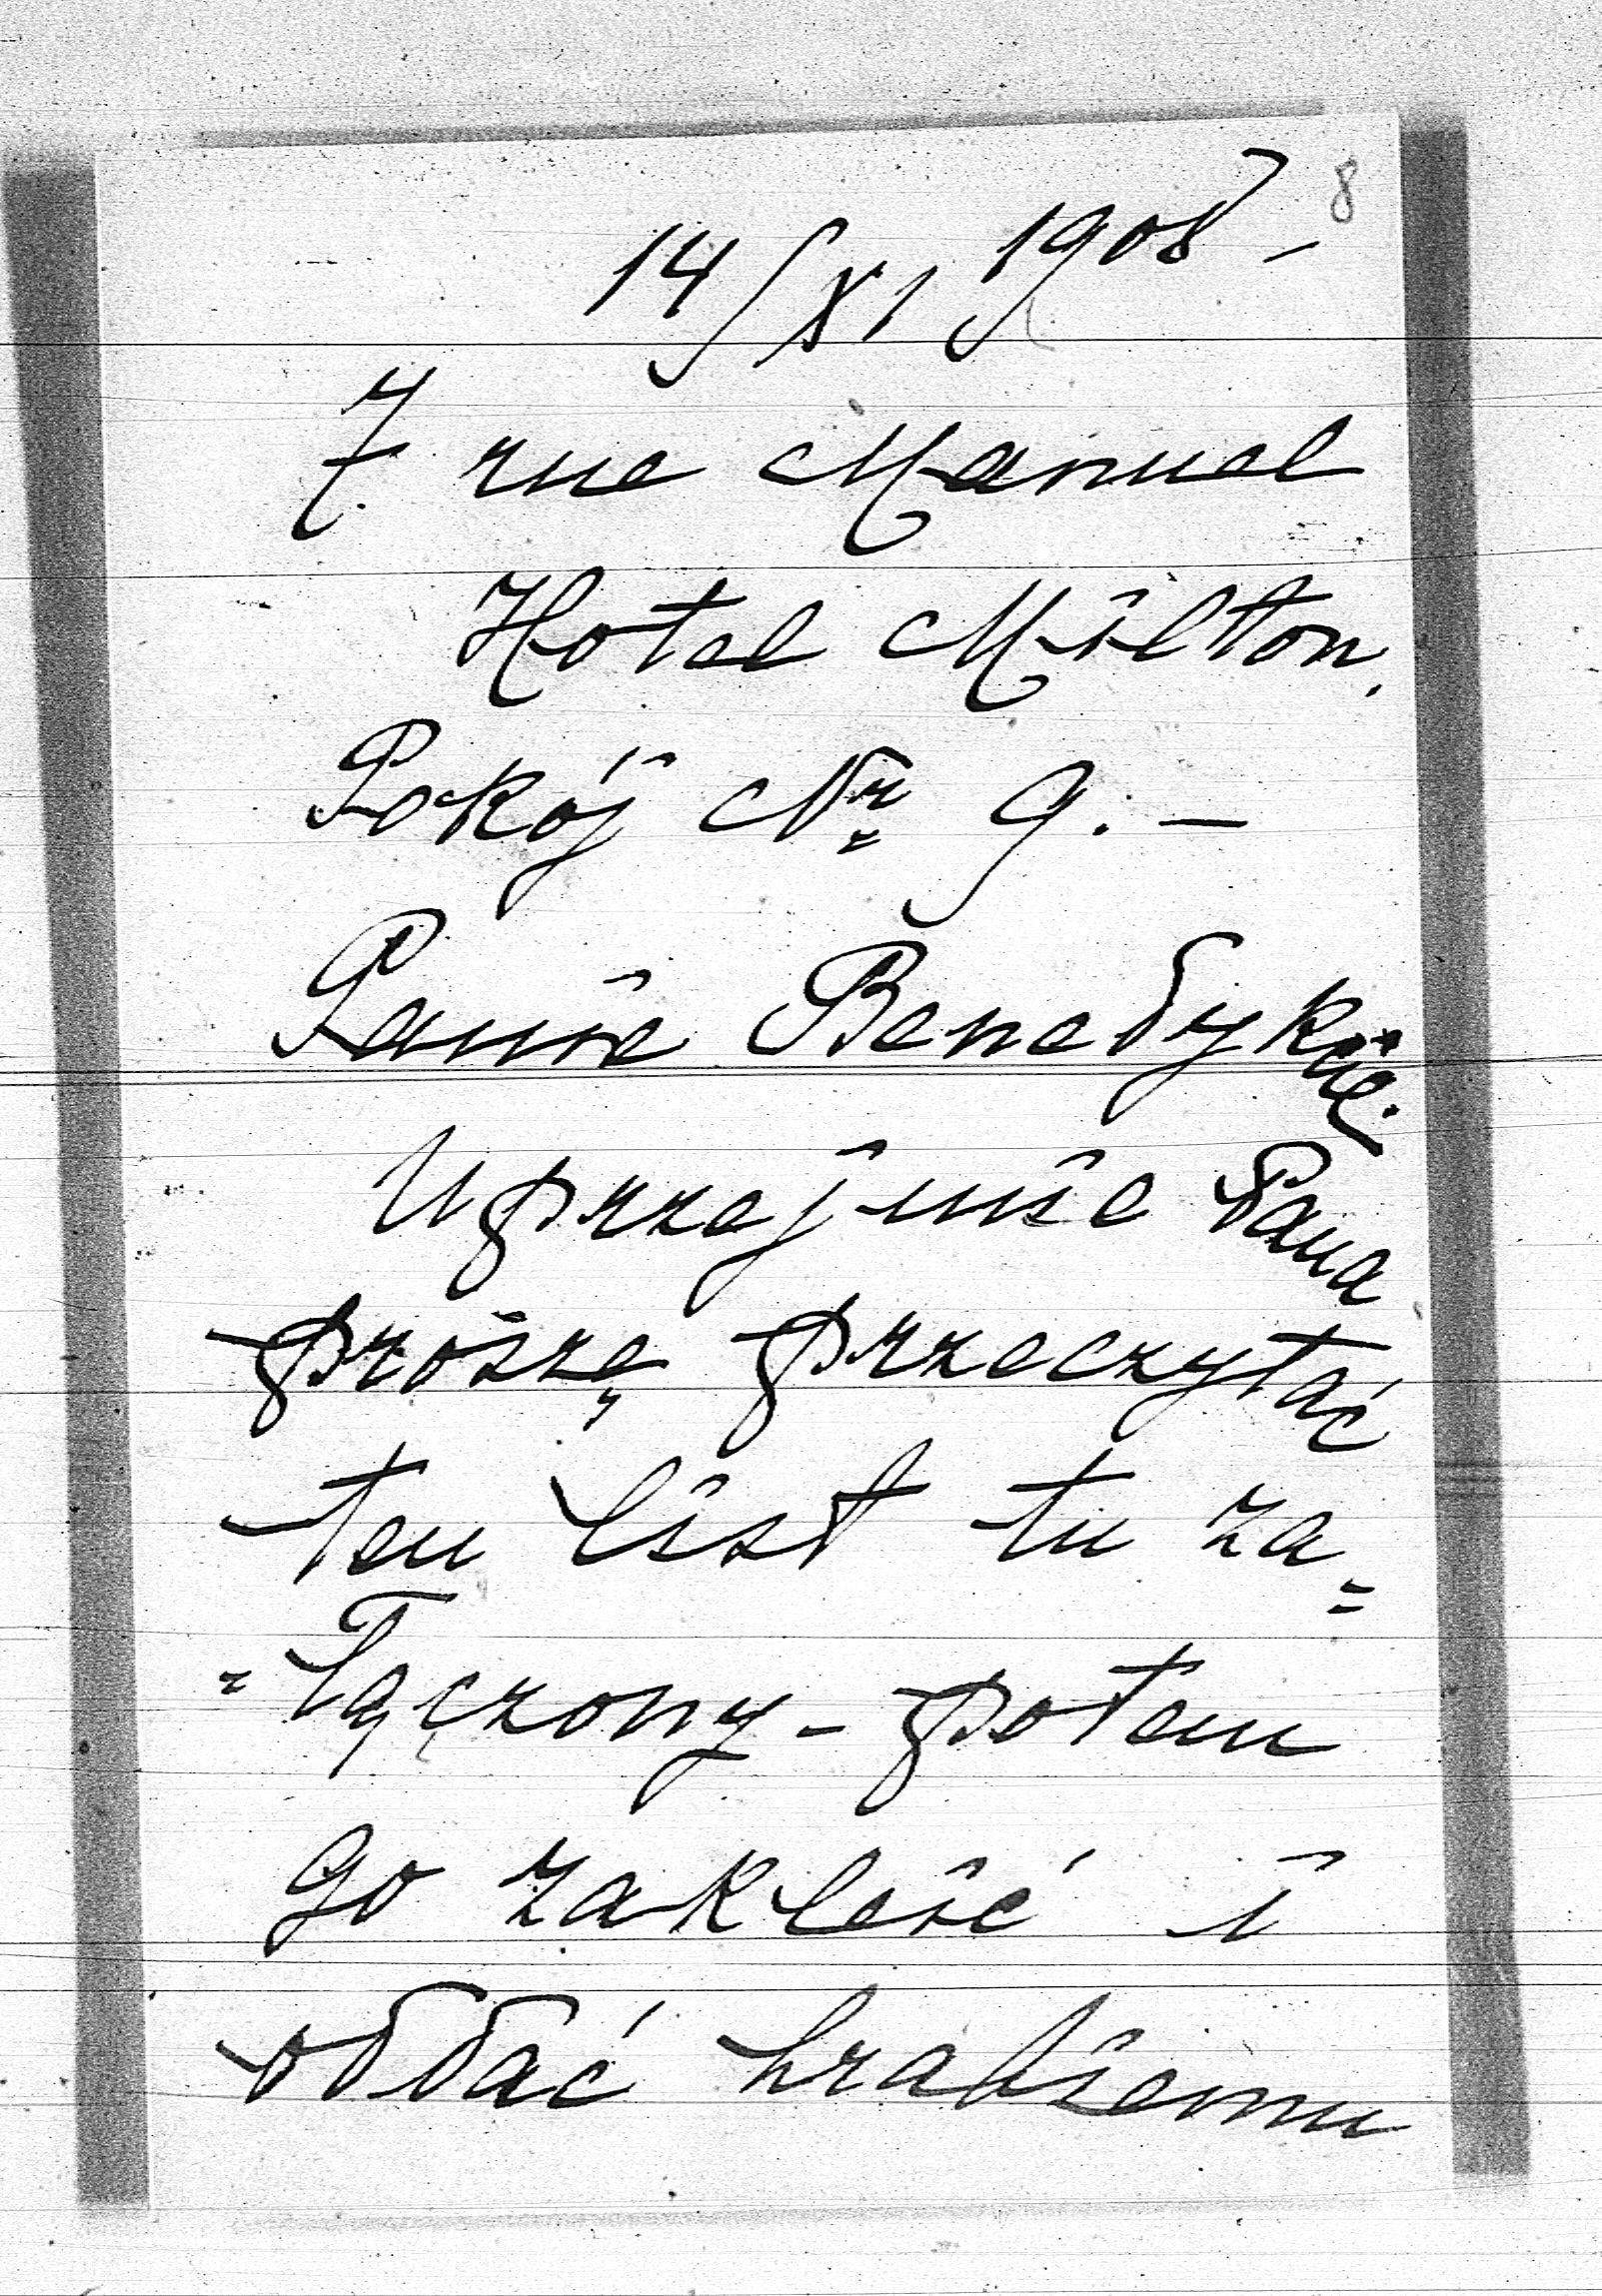 8
14/XI 1908 -
7. rue Manuel
Hotel Milton.
Pokój Nr 9. —
Panie Benedykcie.
Uprzejmie Pana
proszę przeczytać
ten list tu za=
=łączony - potem
go zakleić i
oddać hrabiemu